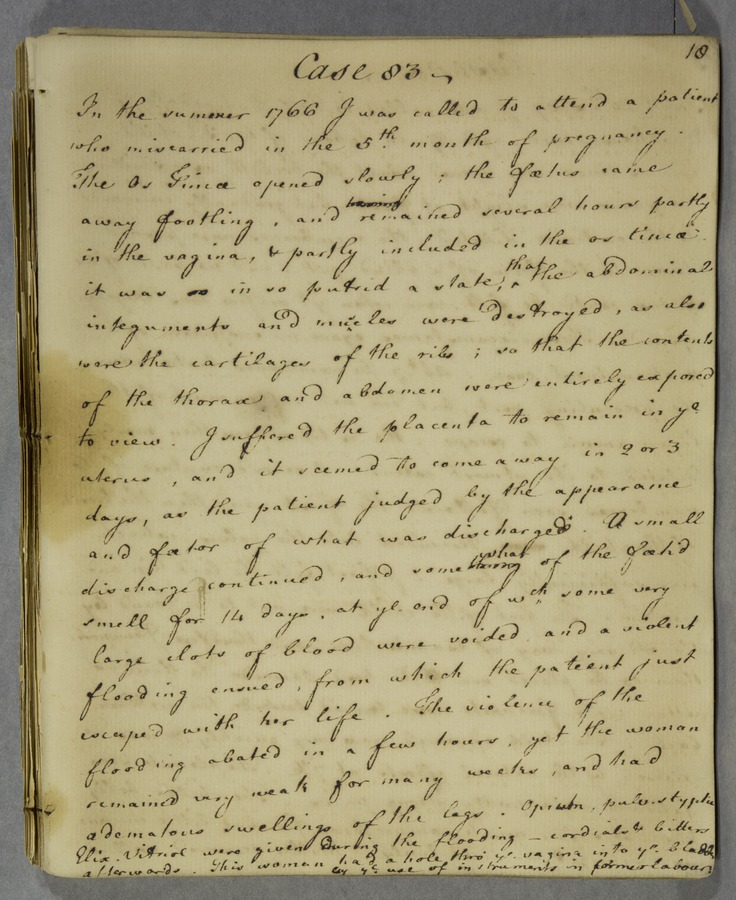 18
Case 83 -
In the summer 1766 I was called to attend a patient
who miscarried in the 5th month of pregnancy.
The Os Tincæ opened slowly; the fœtus came
away footling, and remained several hours partly
in the vagina, & partly included in the os tincæ.
it was in so putrid a state, that the abdominal
integuments and muscles were destroyed, as also
were the cartilages of the ribs; so that the contents
of the thorax and abdomen were entirely exposed
to view. I suffered the placenta to remain in ye
uterus, and it seemed to come away in 2 or 3
days, as the patient judged by the appearance
and fœtor of what was discharged. A small
discharge continued, and somewhat of the fœtid
smell for 14 days, at ye end of wch some very
large clots of blood were voided and a violent
flooding ensued, from which the patient just
escaped with her life. The violence of the
flooding abated in a few hours, yet the woman
remained very weak for many weeks, and had
œdematous swellings of the legs. Opium, pulv. styptic
Elix. Vitriol were given During the flooding - cordials & bitters
afterwards. This woman had a hole thro' ye vagina into ye bladder
by ye use of instruments in former labours